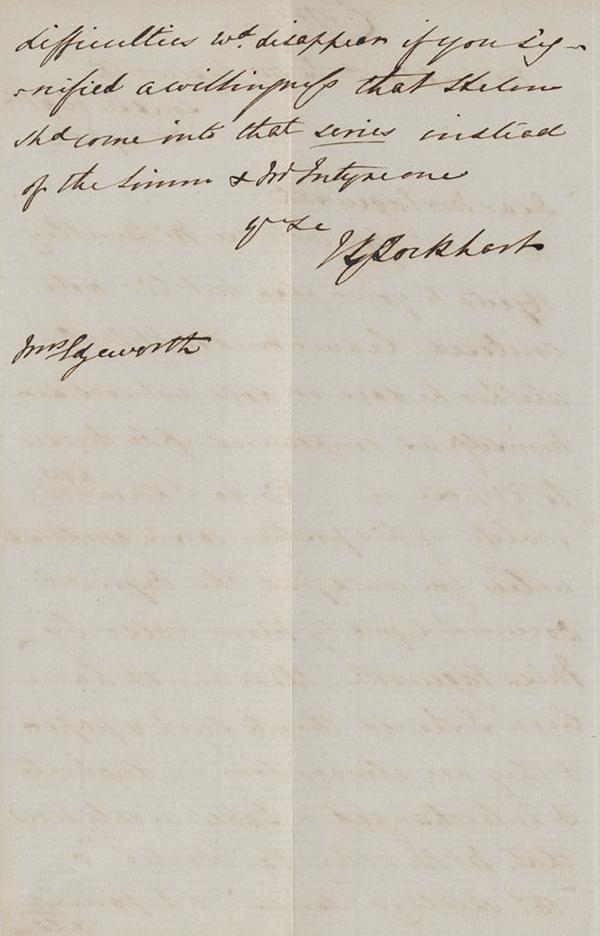 difficulties wd. disappear if you sig-
-nified a willingness that Helen
shd come into that series instead
of the Simm & one
yrs &c
JG Lockhart
Mrs Edgeworth